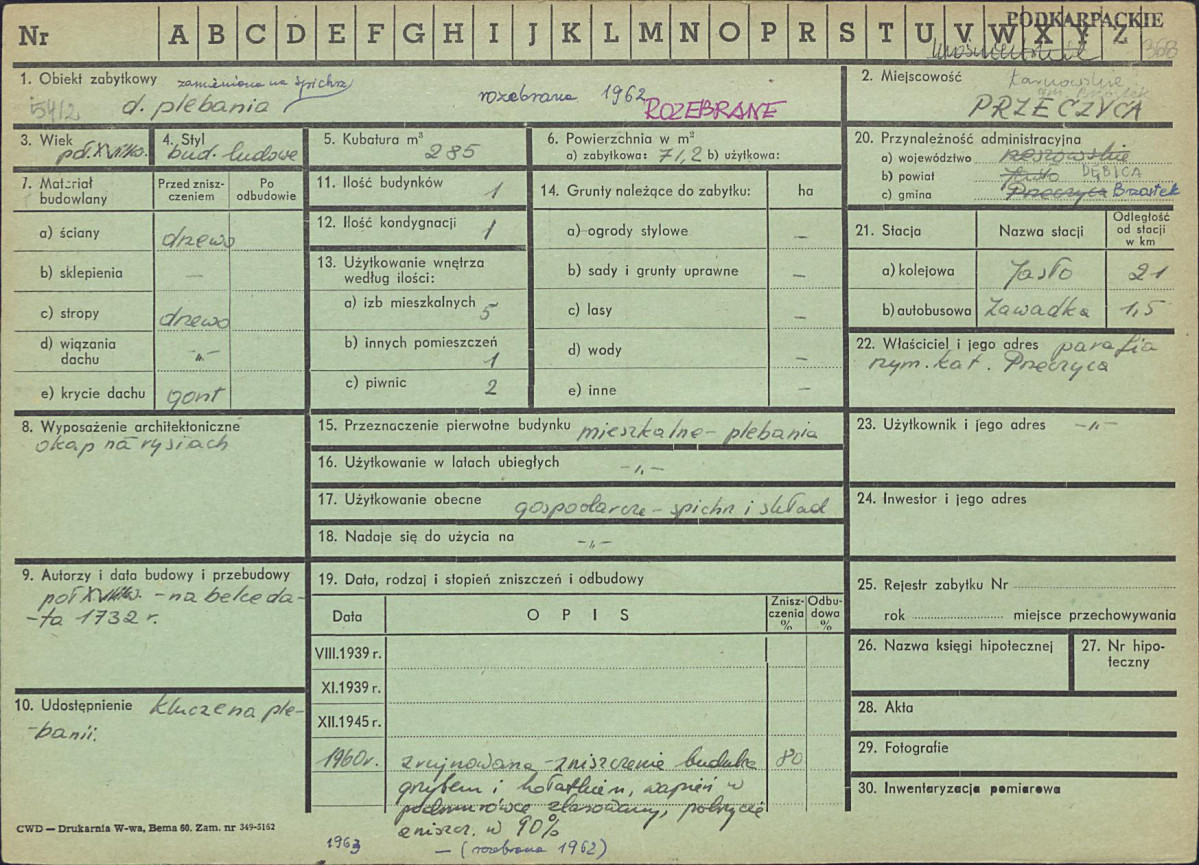 Nr A B C D E F G H I J K L M N O P R S T U V W X Y Z
PODKARPACKIE
368
1. Obiekt zabytkowy zamieniona na spichrz
5412 d. plebania rozebrana 1962 ROZEBRANE
2. Miejscowość
PRZECZYCA
3. Wiek poł. XVIII w.
4. Styl bud. ludowe
5. Kubatura m³ 285
6. Powierzchnia w m²
a) zabytkowa: 71,2 b) użytkowa:
20. Przynależność administracyjna
a) województwo rzeszowskie
b) powiat Jasło DĘBICA
c) gmina Przeczyca Brzostek
7. Materiał budowlany
Przed zniszczeniem
Po odbudowie
a) ściany drzewo
b) sklepienia —
c) stropy drzewo
d) wiązania dachu -„-
e) krycie dachu gont
11. Ilość budynków 1
12. Ilość kondygnacji 1
13. Użytkowanie wnętrza według ilości:
a) izb mieszkalnych 5
b) innych pomieszczeń 1
c) piwnic 2
14. Grunty należące do zabytku: ha
a) ogrody stylowe —
b) sady i grunty uprawne —
c) lasy —
d) wody —
e) inne —
21. Stacja Nazwa stacji Odległość od stacji w km
a) kolejowa Jasło 21
b) autobusowa Zawadka 1,5
22. Właściciel i jego adres parafia
rzym. kat. Przeczyca
8. Wyposażenie architektoniczne
okap na rysiach
15. Przeznaczenie pierwotne budynku mieszkalne - plebania
16. Użytkowanie w latach ubiegłych -„-
17. Użytkowanie obecne gospodarcze - spichrz i skład
18. Nadaje się do użycia na -„-
23. Użytkownik i jego adres -„-
24. Inwestor i jego adres
9. Autorzy i data budowy i przebudowy
poł XVIII w. - na belce da-
-ta 1732 r.
19. Data, rodzaj i stopień zniszczeń i odbudowy
Data OPIS Zniszczenia % Odbudowa %
VIII.1939 r.
XI.1939 r.
XII.1945 r.
1960r. zrujnowana - zniszczenie budulca 80
grzybem i kołatkiem, wapień w
podmurówce zlasowany, pokrycie
zniszcz. w 90%
1963 — (rozebrana 1962)
25. Rejestr zabytku Nr
rok miejsce przechowywania
26. Nazwa księgi hipotecznej
27. Nr hipoteczny
28. Akta
29. Fotografie
30. Inwentaryzacja pomiarowa
10. Udostępnienie klucze na ple-
-banii.
CWD — Drukarnia W-wa, Bema 60. Zam. nr 349-5162